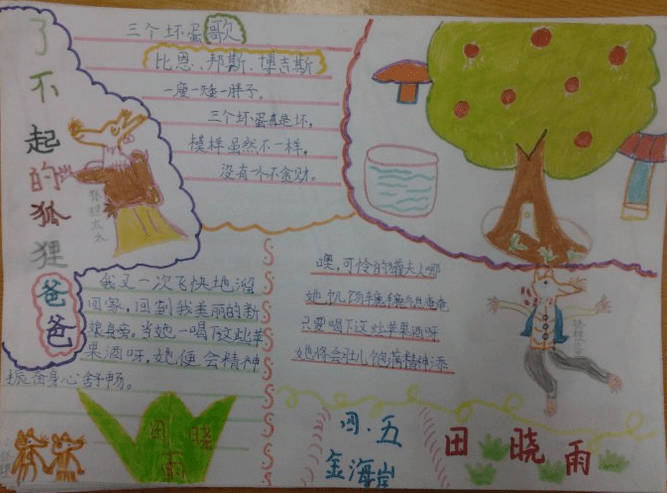 了不起的狐狸爸爸
三个坏蛋歌
比恩、邦斯、博吉斯
一瘦一矮一胖子。
三个坏蛋真是坏，
模样虽然不一样，
没有一个不贪财。
狐狸太太
我又一次飞快地溜
回家，回到我美丽的新
娘身旁。当她一喝下这些苹
果酒呀，她便会精神
振奋身心舒畅。
噢，可怜的獾夫人哪
她饥肠辘辘
只要喝下这些苹果酒呀
她将会壮儿饱满精神添
田晓雨
四.五
金海岸
田晓雨